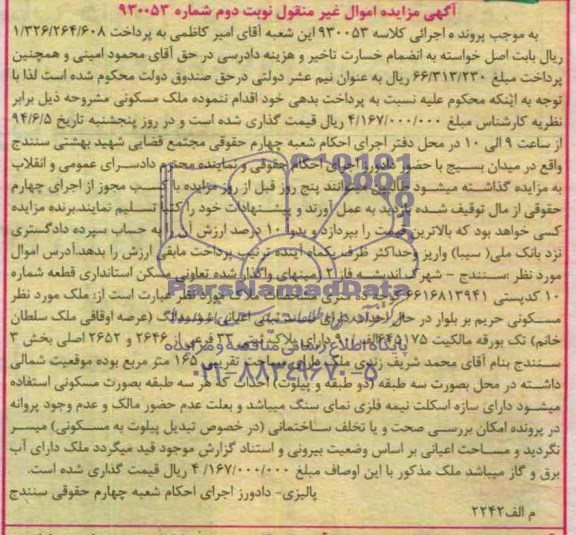 آگهی مزایده اموال غیر منقول نوبت دوم شماره ۹۳۰۰۵۳
به موجب پرونده اجرائی کلاسه ۹۳۰۰۵۳ این شعبه آقای امیر کاظمی به پرداخت ۱/۳۲۶/۲۶۴/۶۰۸
ریال بابت اصل خواسته به انضمام خسارت تاخیر و هزینه دادرسی در حق آقای محمود امینی و همچنین
پرداخت مبلغ ۶۶/۳۱۳/۲۳۰ ریال به عنوان نیم عشر دولتی درحق صندوق دولت محکوم شده است لذا با
توجه به اینکه محکوم علیه نسبت به پرداخت بدهی خود اقدام ننموده ملک مسکونی مشروحه ذیل برابر
نظریه کارشناس مبلغ ۴/۱۶۷/۰۰۰/۰۰۰ ریال قیمت گذاری شده است و در روز پنجشنبه تاریخ ۹۴/۶/۵
از ساعت ۹ الی ۱۰ در محل دفتر اجرای احکام شعبه چهارم حقوقی مجتمع قضایی شهید بهشتی سنندج
واقع در میدان بسیج با حضور دادورز اجرای احکام حقوقی و نماینده محترم دادسرای عمومی و انقلاب
به مزایده گذاشته میشود طالبین میتوانند پنج روز قبل از روز مزایده با کسب مجوز از اجرای چهارم
حقوقی از مال توقیف شده بازدید به عمل آورند و پیشنهادات خود را کتبا تسلیم نمایند.برنده مزایده
کسی خواهد بود که بالاترین قیمت را بپردازد و بدوا ۱۰ درصد ارزش آن را به حساب سپرده دادگستری
نزد بانک ملی( سیبا) واریز وحداکثر ظرف یکماه آینده ترتیب پرداخت مابقی ارزش را بدهد.آدرس اموال
مورد نظر :سنندج – شهرک اندیشه فاز ۲ زمینهای واگذار شده تعاونی مسکن استانداری قطعه شماره
۱۰ کدپستی ۶۶۱۶۸۱۳۹۴۱ مشخصات ملاک مورد نظر عبارت است از: ملک مورد نظر
مسکونی حریم بر بلوار در حال احداث دارای ششدانگ (عرصه اوقافی ملک سلطان
خانم) تک بورقه مالکیت دارای پلاک ثبتی ۳۳ فرعی از ۲۶۴۶ و ۲۶۵۲ اصلی بخش ۳
سنندج بنام آقای محمد شریف زندی ملک دارای مساحت تقریبی ۱۶۵ متر مربع بوده موقعیت شمالی
داشته در محل بصورت سه طبقه (دو طبقه و پیلوت) احداث که هر سه طبقه بصورت مسکونی استفاده
میشود دارای سازه اسکلت نیمه فلزی نمای سنگ میباشد و بعلت عدم حضور مالک و عدم وجود پروانه
در پرونده امکان بررسی صحت و یا تخلف ساختمانی (در خصوص تبدیل پیلوت به مسکونی) میسر
نگردید و مساحت اعیانی بر اساس وضعیت بیرونی و استناد گزارش موجود قید میگردد ملک دارای آب
برق و گاز میباشد ملک مذکور با این اوصاف مبلغ ۴/۱۶۷/۰۰۰/۰۰۰ ریال قیمت گذاری شده است.
پالیزی- دادورز اجرای احکام شعبه چهارم حقوقی سنندج
م الف۲۲۴۲
ParsNamadData
۰۲۱-۸۸۳۴۹۶۷۰-۵